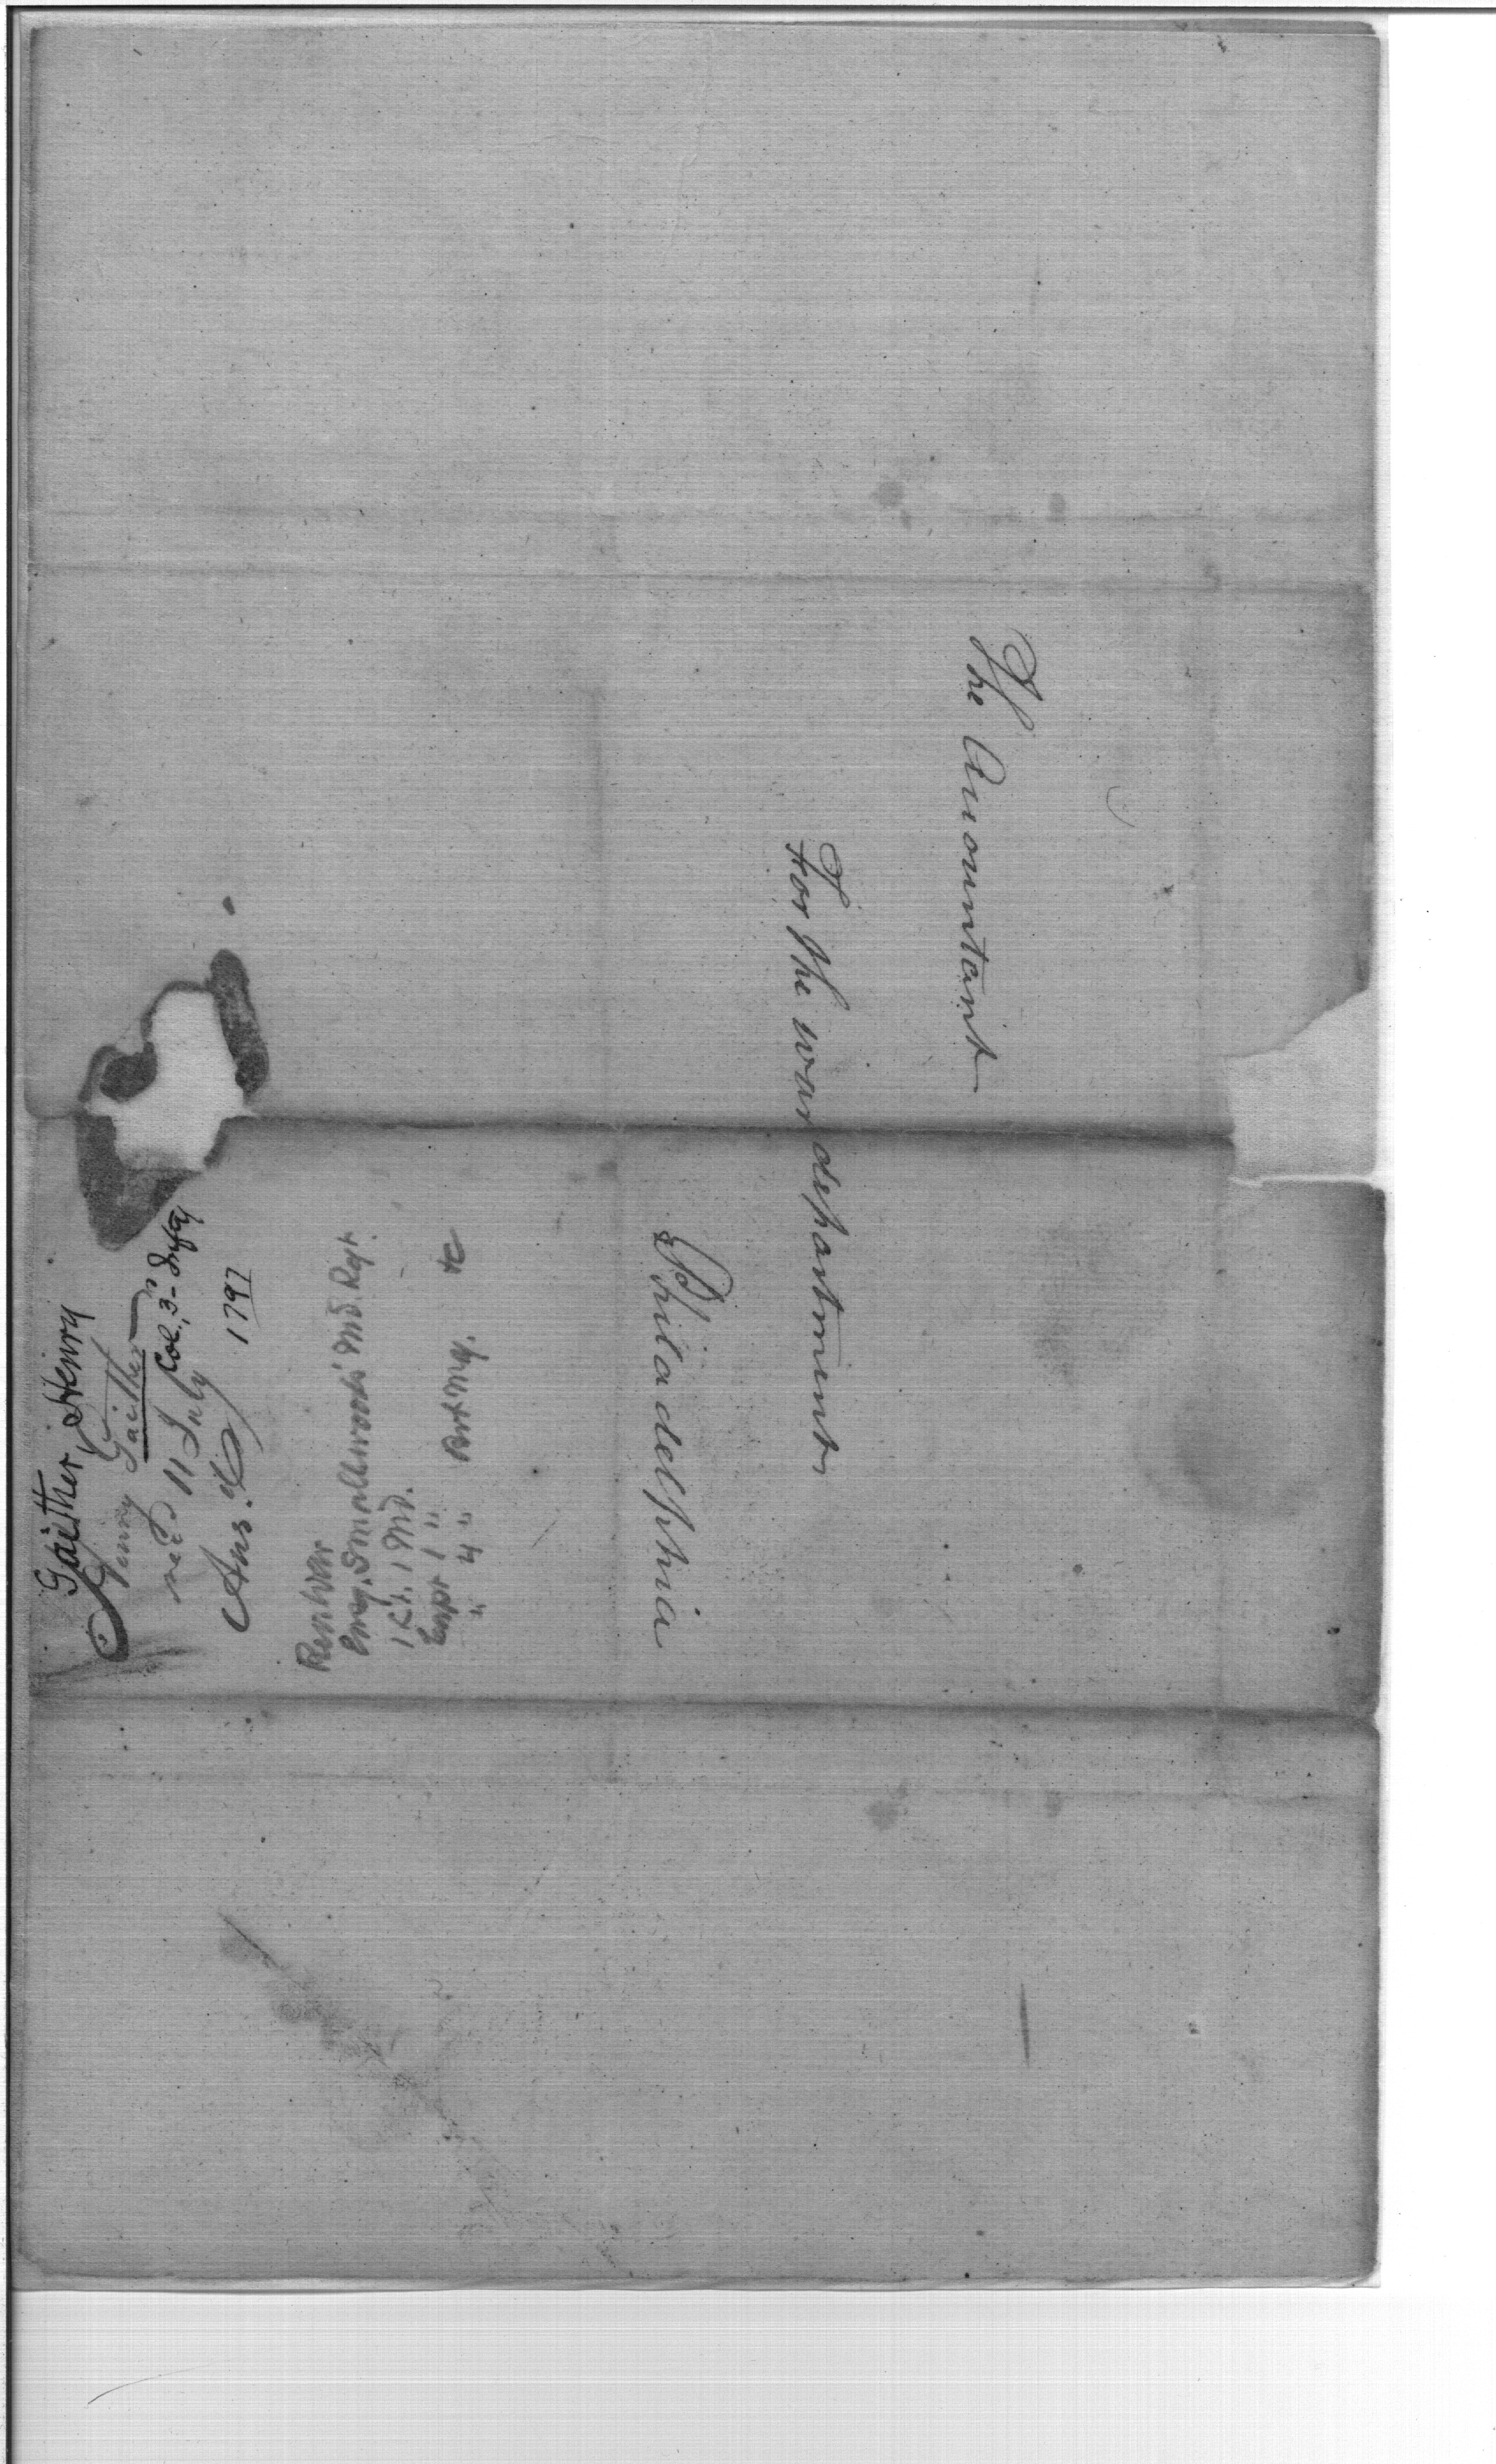 The Accountant
For the war department
Philadelphia
Gaither, Henry
Henry Gaither
Col. 3d Infy
recd 11 July
Ans.
1797
Rev War
Smallwoods' Md. Regt.
1 Lt. 1 Md.
Capt 1 "
" 4 " &c